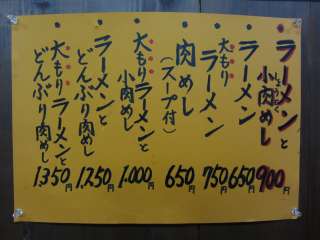 ラーメンと
小肉めし
しょうにく
900円
ラーメン
650円
大もり
ラーメン
750円
肉めし
(スープ付)
650円
大もりラーメンと
小肉めし
1,000円
ラーメンと
どんぶり肉めし
1,250円
大もりラーメンと
どんぶり肉めし
1,350円